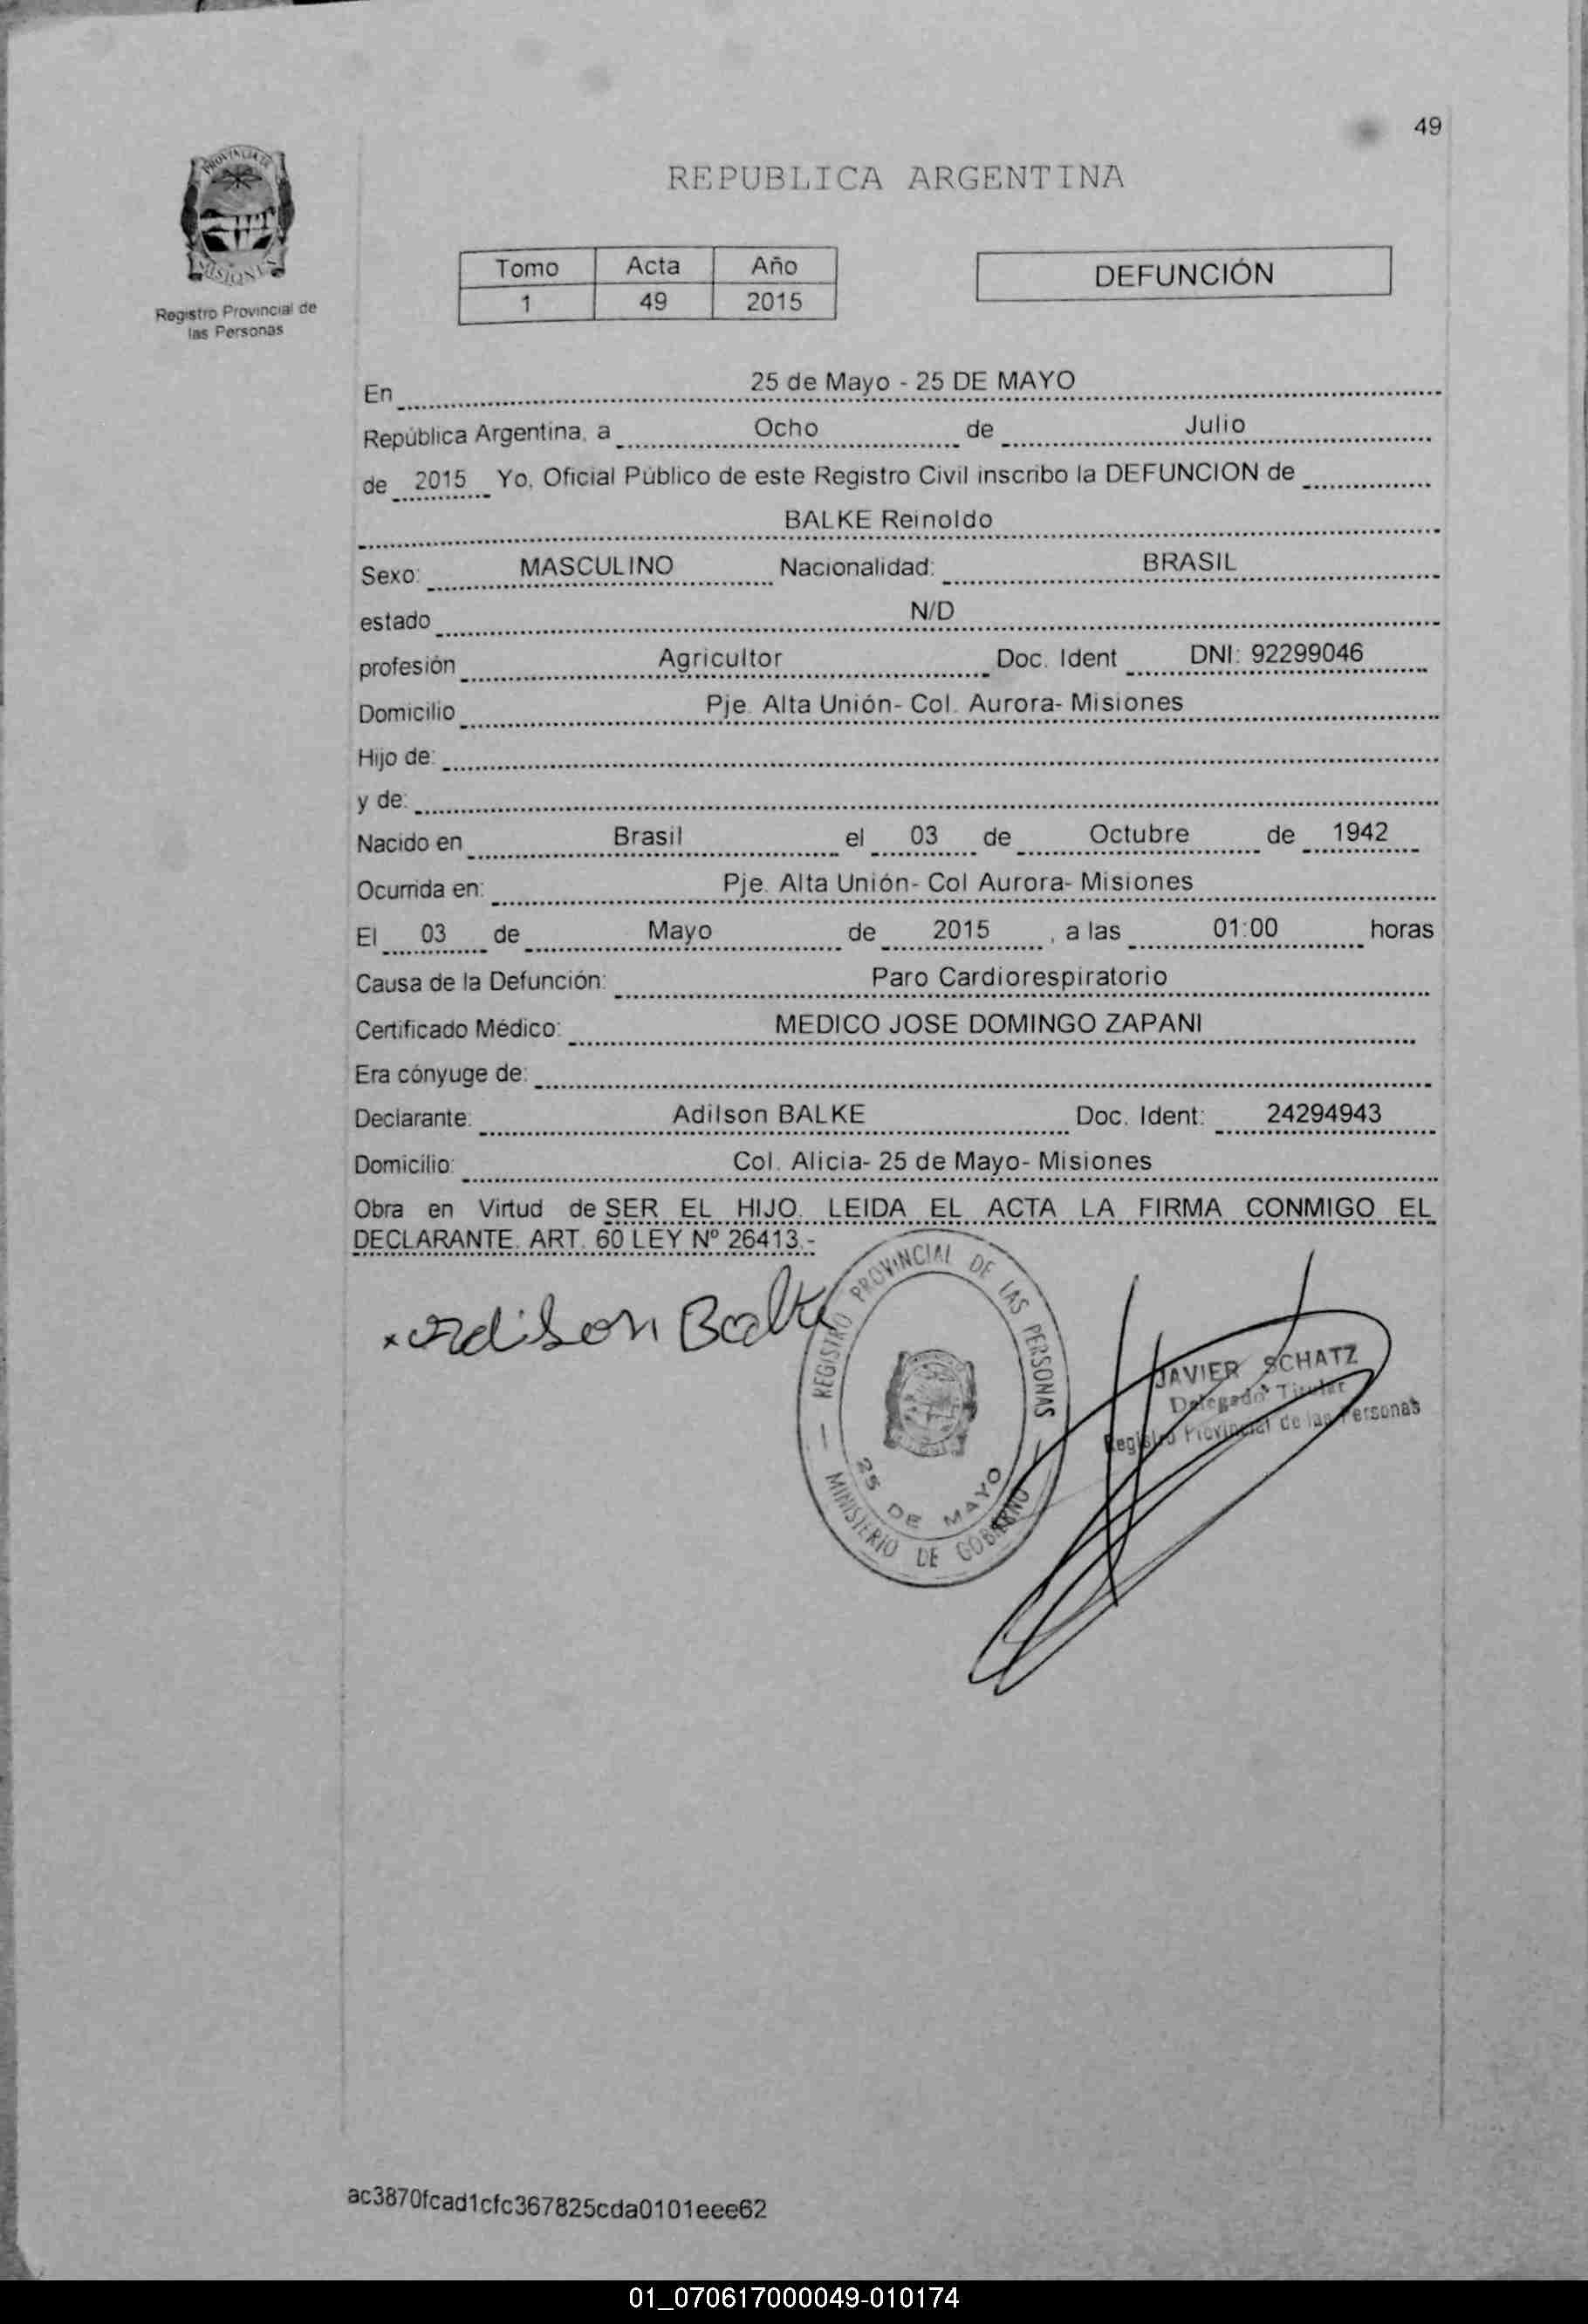 49
PROVINCIA DE
MISIONES
Registro Provincial de
las Personas
REPUBLICA ARGENTINA
Tomo Acta Año
1 49 2015
DEFUNCIÓN
En 25 de Mayo - 25 DE MAYO
República Argentina, a Ocho de Julio
de 2015 Yo, Oficial Público de este Registro Civil inscribo la DEFUNCION de
BALKE Reinoldo
Sexo: MASCULINO Nacionalidad: BRASIL
estado N/D
profesión Agricultor Doc. Ident DNI: 92299046
Domicilio Pje. Alta Unión- Col. Aurora- Misiones
Hijo de:
y de:
Nacido en Brasil el 03 de Octubre de 1942
Ocurrida en: Pje. Alta Unión- Col Aurora- Misiones
El 03 de Mayo de 2015, a las 01:00 horas
Causa de la Defunción: Paro Cardiorespiratorio
Certificado Médico: MEDICO JOSE DOMINGO ZAPANI
Era cónyuge de:
Declarante: Adilson BALKE Doc. Ident: 24294943
Domicilio: Col. Alicia- 25 de Mayo- Misiones
Obra en Virtud de SER EL HIJO. LEIDA EL ACTA LA FIRMA CONMIGO EL
DECLARANTE. ART. 60 LEY Nº 26413.-
x Adilson Balke
REGISTRO PROVINCIAL DE LAS PERSONAS
25 DE MAYO
MINISTERIO DE GOBIERNO
JAVIER SCHATZ
Delegado Titular
Registro Provincial de las Personas
ac3870fcad1cfc367825cda0101eee62
01_070617000049-010174